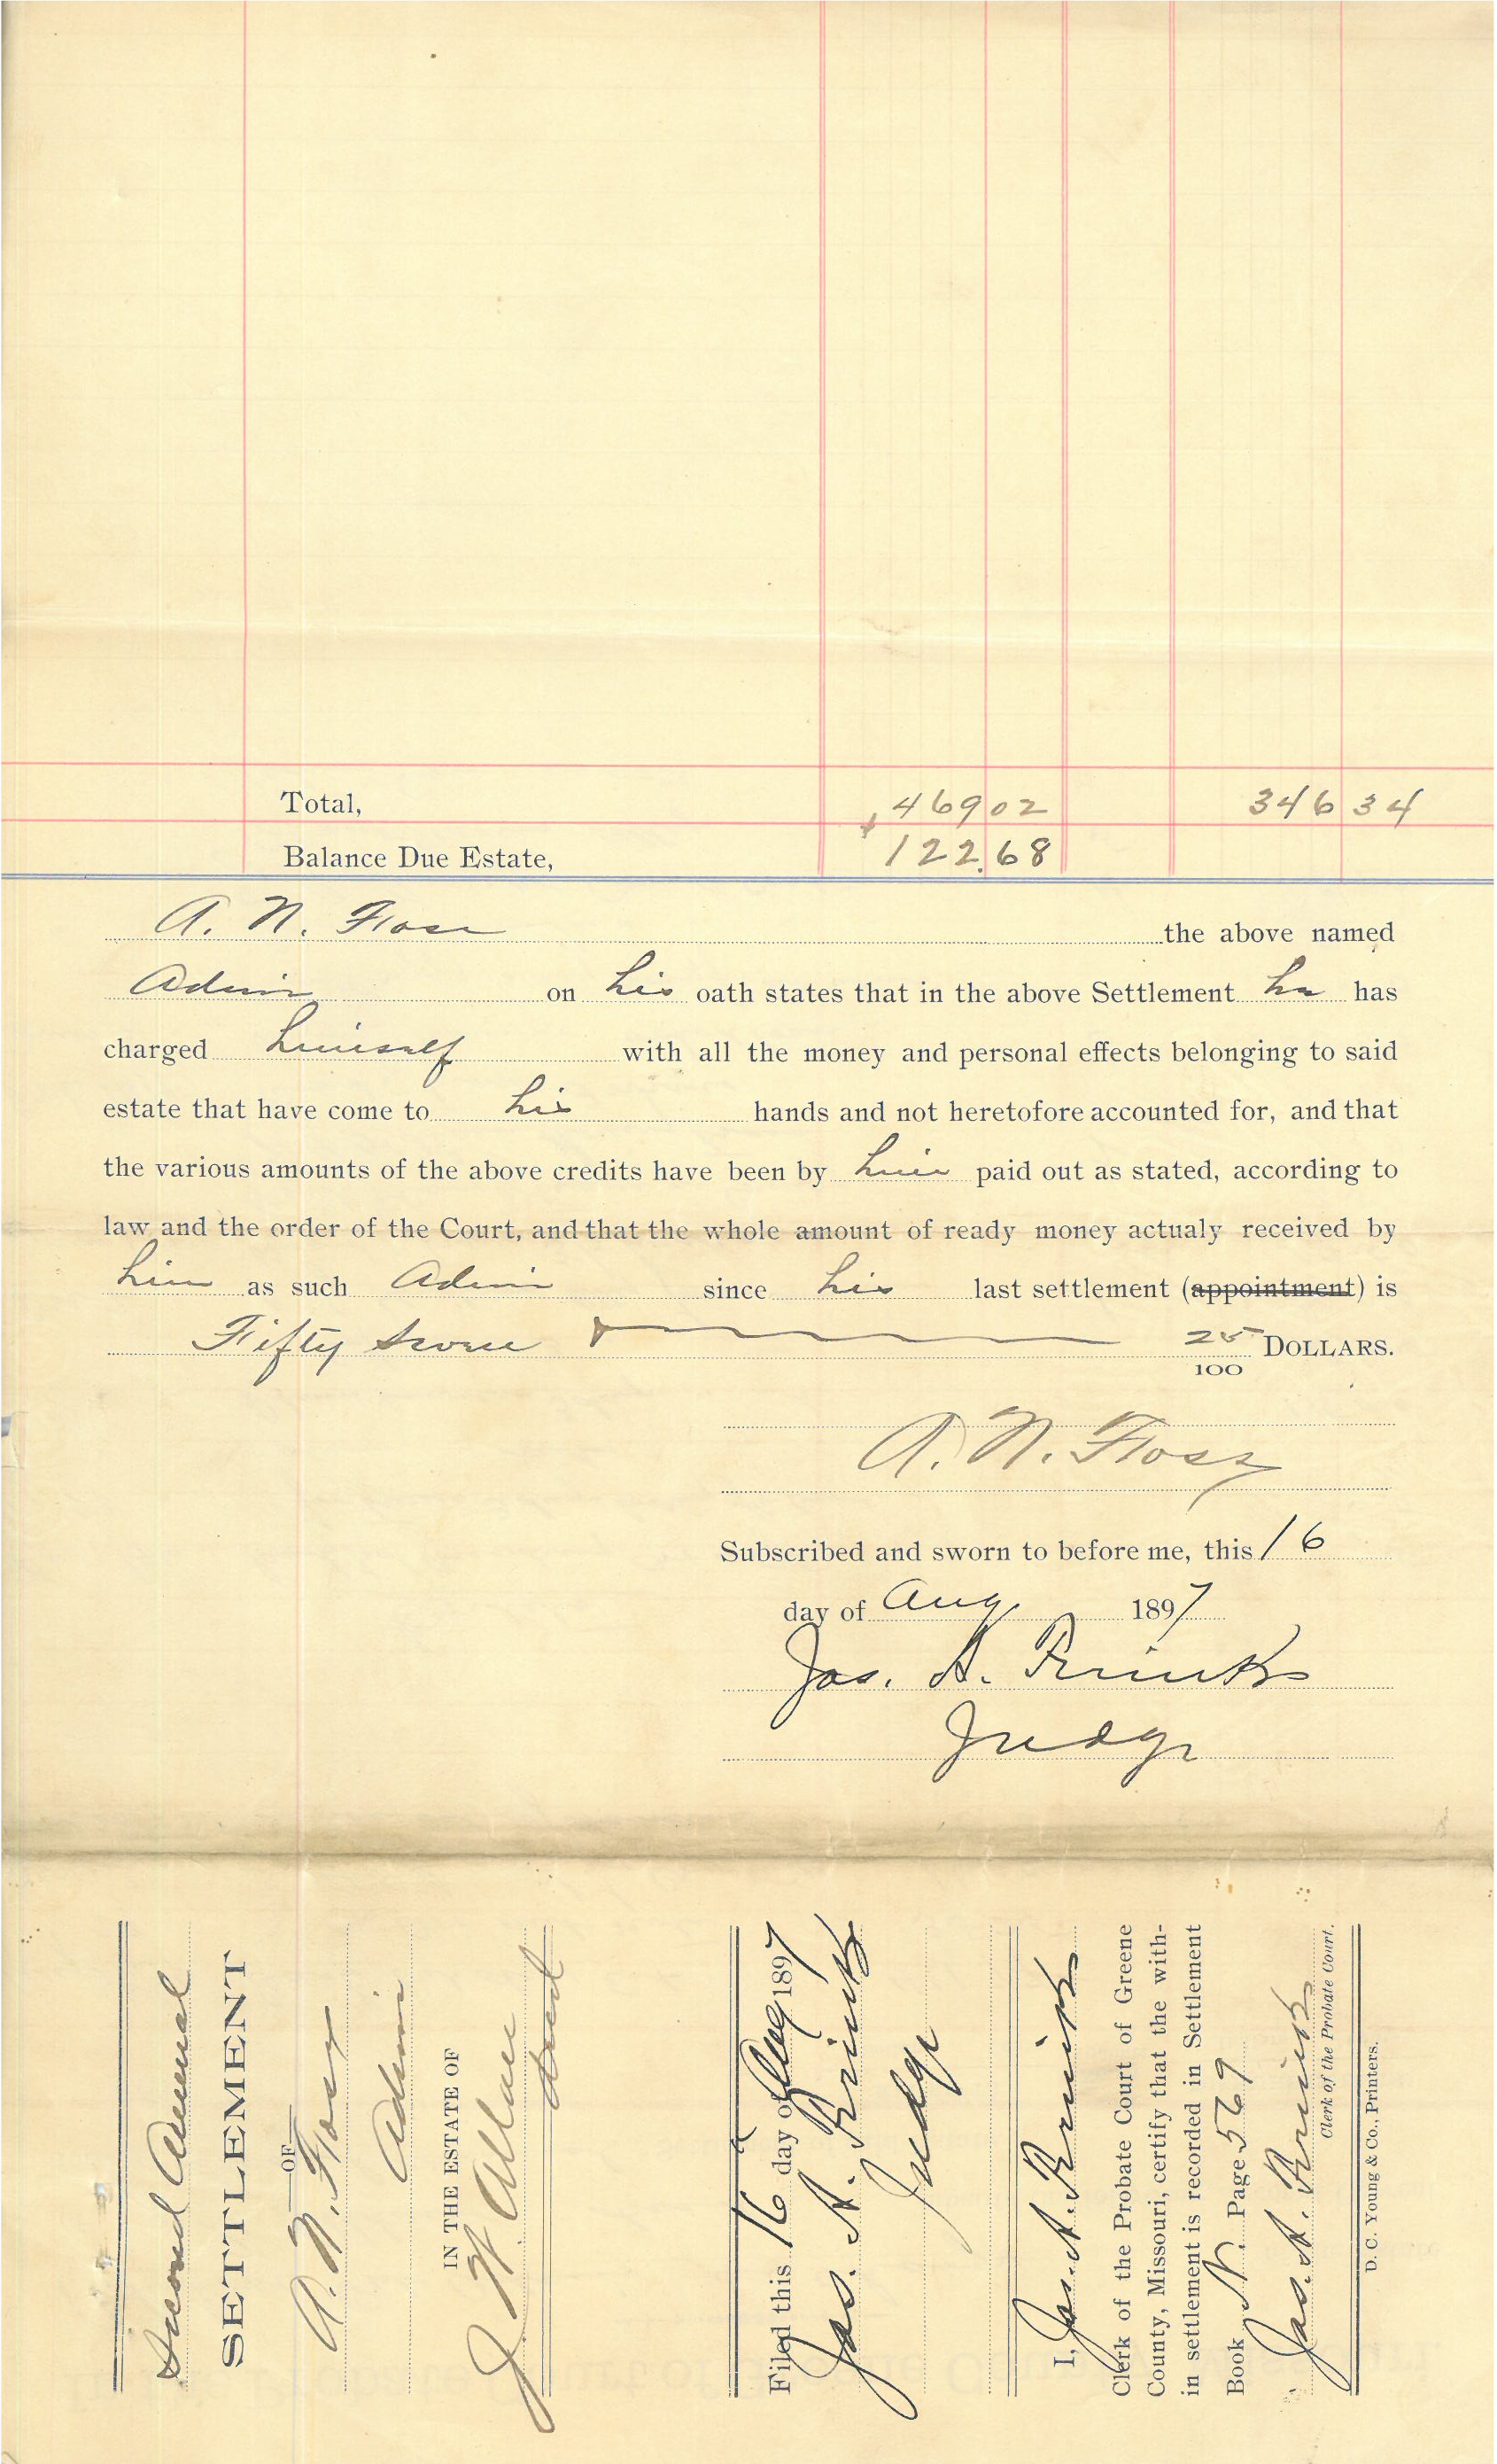 Total, 469 02 346 34
Balance Due Estate, 122.68
A. N. Flora the above named
Admr on his oath states that in the above Settlement he has
charged himself with all the money and personal effects belonging to said
estate that have come to his hands and not heretofore accounted for, and that
the various amounts of the above credits have been by him paid out as stated, according to
law and the order of the Court, and that the whole amount of ready money actualy received by
him as such Admr since his last settlement (appointment) is
Fifty seven 25/100 DOLLARS.
A. N.
Subscribed and sworn to before me, this 16
day of Aug 1897
Jas. A.
Judge
Second Annual
SETTLEMENT
OF
A. N.
Admr
IN THE ESTATE OF
J
Filed this 16 day of Aug 1897
Jas. A.
Judge
I, Jas. A.
Clerk of the Probate Court of Greene
County, Missouri, certify that the with-
in settlement is recorded in Settlement
Book N. Page 569
Jas. A.
Clerk of the Probate Court.
D. C. Young & Co., Printers.